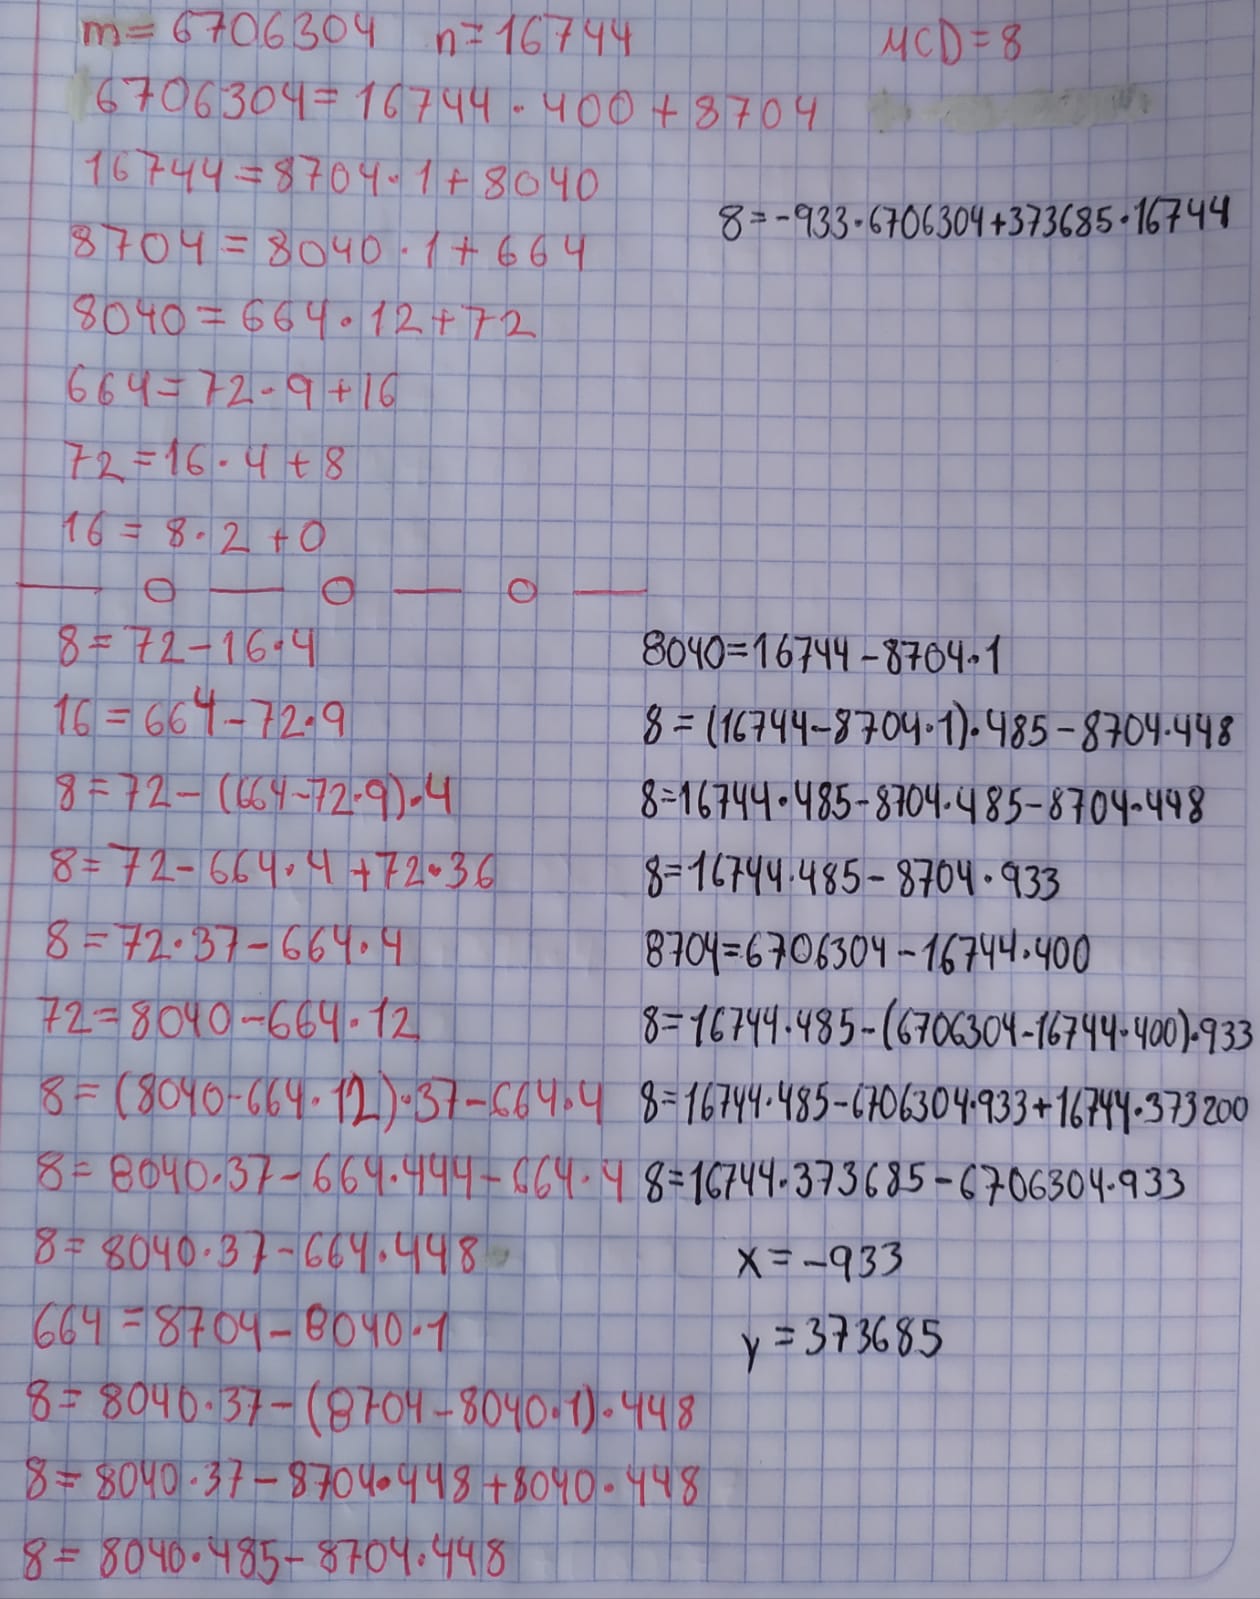 m= 6706304 n=16744 MCD=8
6706304=16744·400+8704
16744=8704·1+8040
8=-933·6706304+373685·16744
8704=8040·1+664
8040=664·12+72
664=72·9+16
72=16·4+8
16=8·2+0
8=72-16·4
16=664-72·9
8=72-(664-72·9)·4
8=72-664·4+72·36
8=72·37-664·4
72=8040-664·12
8=(8040-664·12)·37-664·4
8=8040·37-664·444-664·4
8=8040·37-664·448
664=8704-8040·1
8=8040·37-(8704-8040·1)·448
8=8040·37-8704·448+8040·448
8=8040·485-8704·448
8040=16744-8704·1
8=(16744-8704·1)·485-8704·448
8=16744·485-8704·485-8704·448
8=16744·485-8704·933
8704=6706304-16744·400
8=16744·485-(6706304-16744·400)·933
8=16744·485-6706304·933+16744·373200
8=16744·373685-6706304·933
x=-933
y=373685